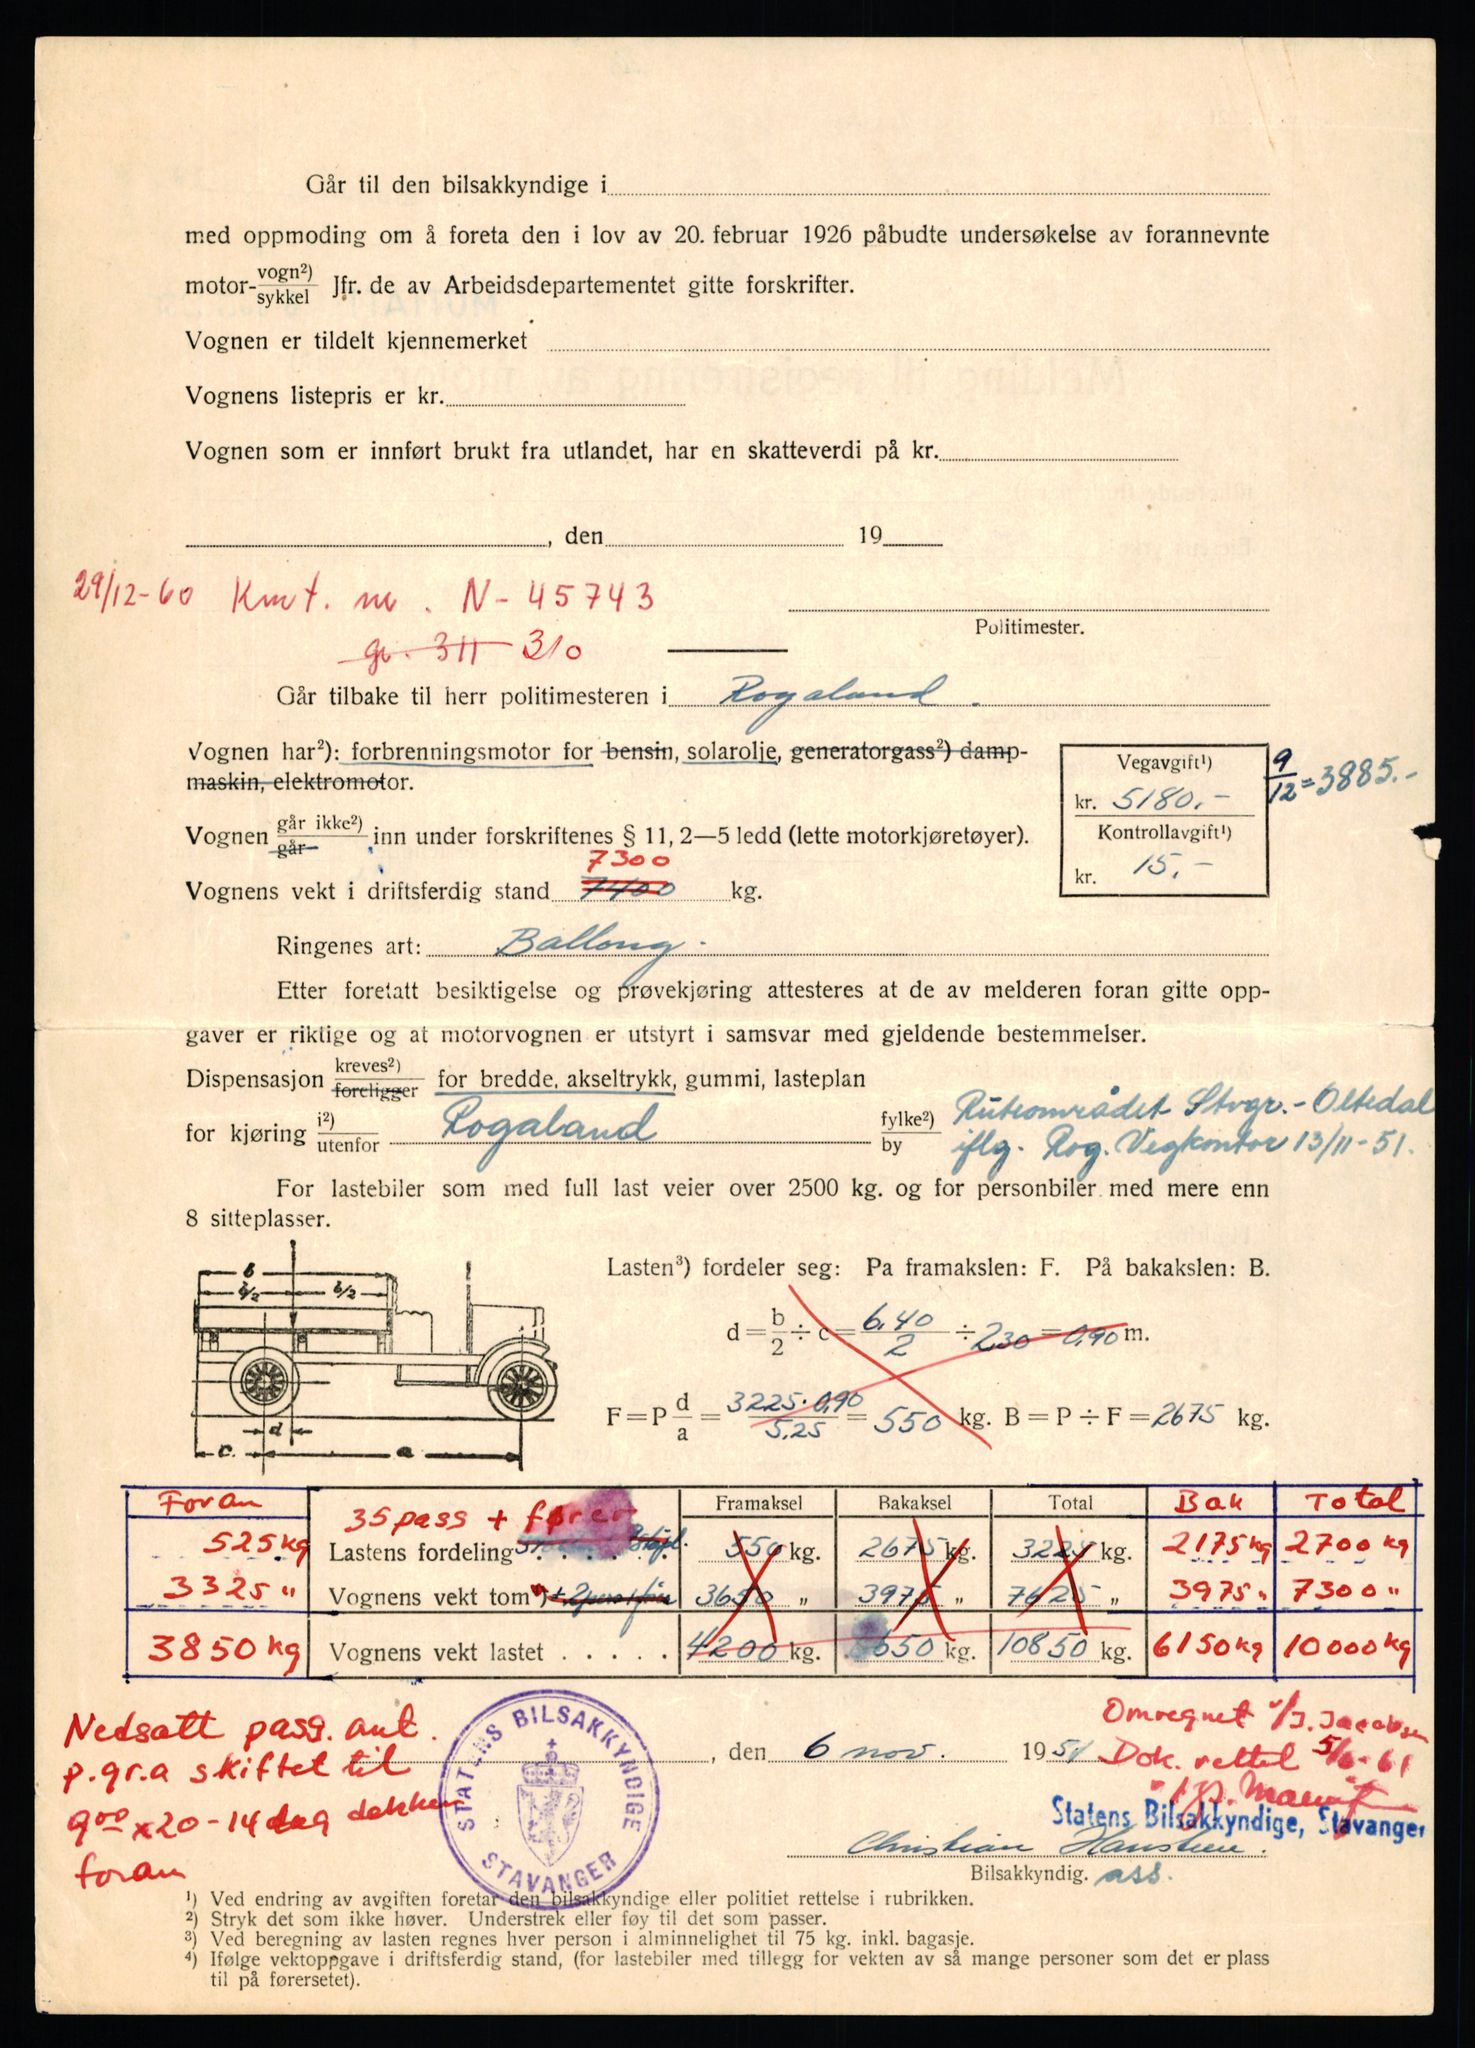 Går til den bilsakkyndige i
med oppmoding om å foreta den i lov av 20. februar 1926 påbudte undersøkelse av forannevnte
motor- vogn²) / sykkel Jfr. de av Arbeidsdepartementet gitte forskrifter.
Vognen er tildelt kjennemerket
Vognens listepris er kr.
Vognen som er innført brukt fra utlandet, har en skatteverdi på kr.
, den 19
29/12-60 Kmt. nr. N-45743
Politimester.
gv. 311 310
Går tilbake til herr politimesteren i Rogaland.
Vognen har²): forbrenningsmotor for bensin, solarolje, generatorgass²) damp-
maskin, elektromotor.
Vegavgift¹)
kr. 5180.-
9/12 = 3885.-
Kontrollavgift¹)
kr. 15.-
Vognen går ikke²) / går inn under forskriftenes § 11, 2—5 ledd (lette motorkjøretøyer).
7300
Vognens vekt i driftsferdig stand 7400 kg.
Ringenes art: Ballong.
Etter foretatt besiktigelse og prøvekjøring attesteres at de av melderen foran gitte opp-
gaver er riktige og at motorvognen er utstyrt i samsvar med gjeldende bestemmelser.
Dispensasjon kreves²) / foreligger for bredde, akseltrykk, gummi, lasteplan
for kjøring i²) / utenfor Rogaland fylke²) / by Ruteområdet Stvgr.-Oltedal
iflg. Rog. Vegkontor 13/11-51.
For lastebiler som med full last veier over 2500 kg. og for personbiler med mere enn
8 sitteplasser.
b
b/2 b/2
d
c. a
Lasten³) fordeler seg: Pa framakslen: F. På bakakslen: B.
d = b/2 ÷ c = 6.40/2 ÷ 2.30 = 0.90 m.
F = P d/a = 3225.0,90/5.25 = 550 kg. B = P ÷ F = 2675 kg.
Foran 35 pass + fører Framaksel Bakaksel Total Bak Total
525 kg Lastens fordeling 550 kg. 2675 kg. 3225 kg. 2175 kg 2700 kg
3325 " Vognens vekt tom 3650 " 3975 " 7625 " 3975 " 7300 "
3850 kg Vognens vekt lastet 4200 kg. 6650 kg. 10850 kg. 6150 kg 10000 kg
Nedsatt pass. ant.
p.gr.a skiftet til
900 x 20 - 14 lag dekken
foran
STATENS BILSAKKYNDIGE
STAVANGER
, den 6 nov. 1951
Omregnet v/J. Jacobsen
Dok. rettet 5/6-61
Statens Bilsakkyndige, Stavanger
Christian Hansteen.
Bilsakkyndig. ass.
¹) Ved endring av avgiften foretar den bilsakkyndige eller politiet rettelse i rubrikken.
²) Stryk det som ikke høver. Understrek eller føy til det som passer.
³) Ved beregning av lasten regnes hver person i alminnelighet til 75 kg. inkl. bagasje.
⁴) Ifølge vektoppgave i driftsferdig stand, (for lastebiler med tillegg for vekten av så mange personer som det er plass
til på førersetet).